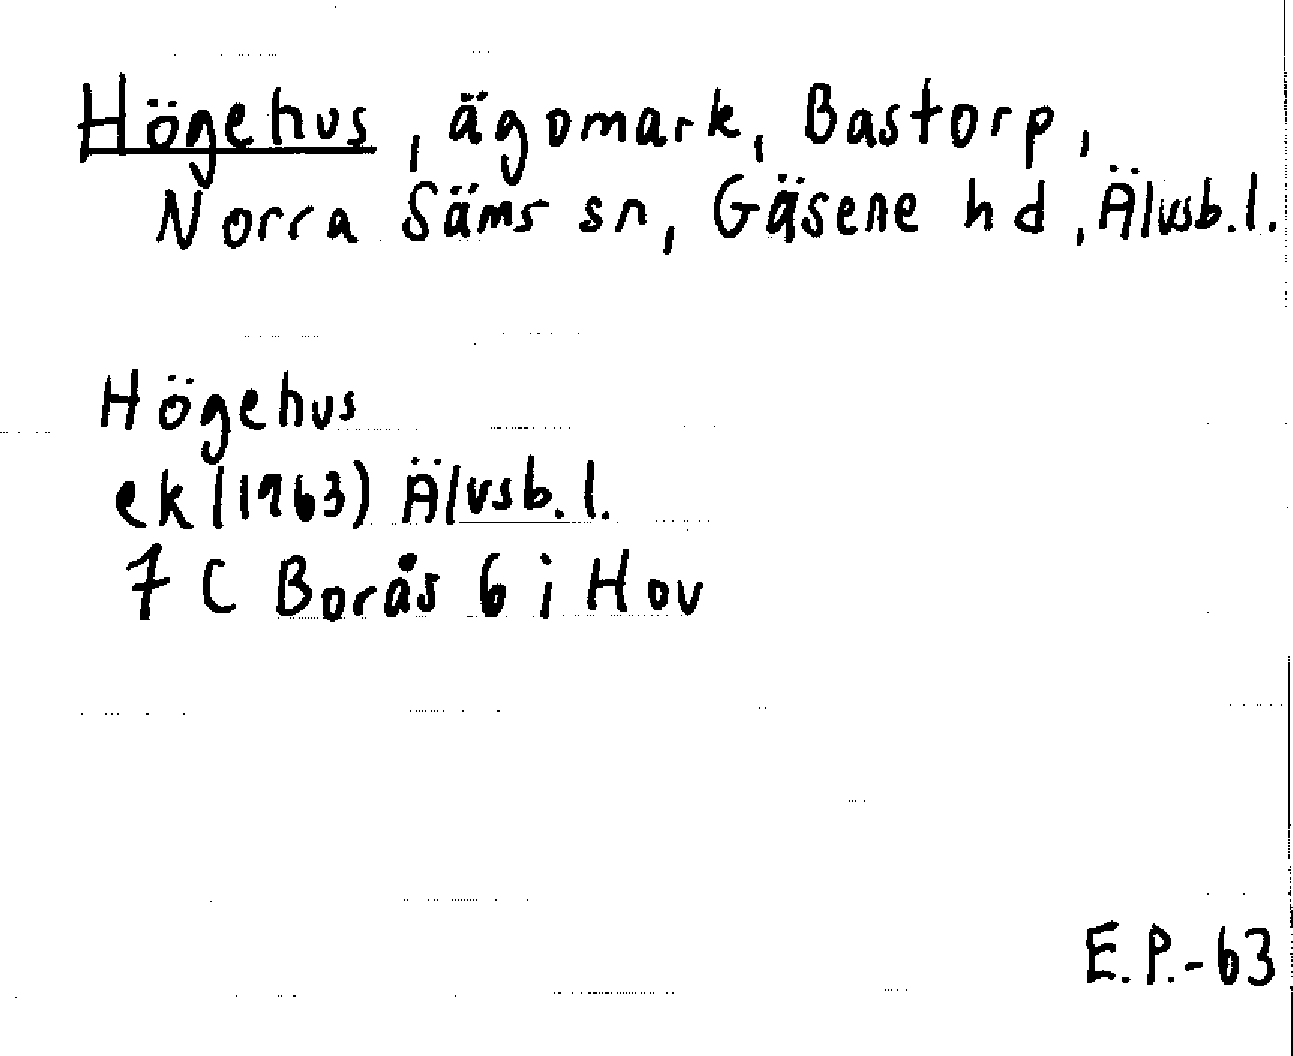 Högehus, ägomark, Bastorp,
Norra Säms sn, Gäsene hd, Älvsb.l.
Högehus
ek (1963) Älvsb.l.
7 C Borås 6 i Hov
E.P.-63